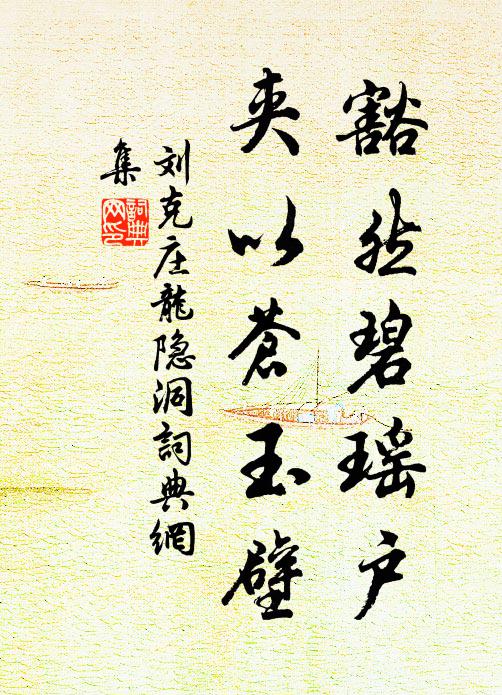 豁然碧瑶户
夹以苍玉壁
刘克庄龍隐洞詞典網
集
詞典网印